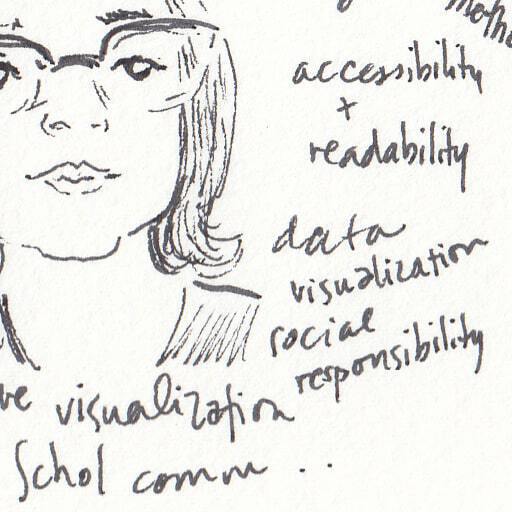 accessibility
+
readability
data
visualization
social
responsibility
visualization
Schol comm ..